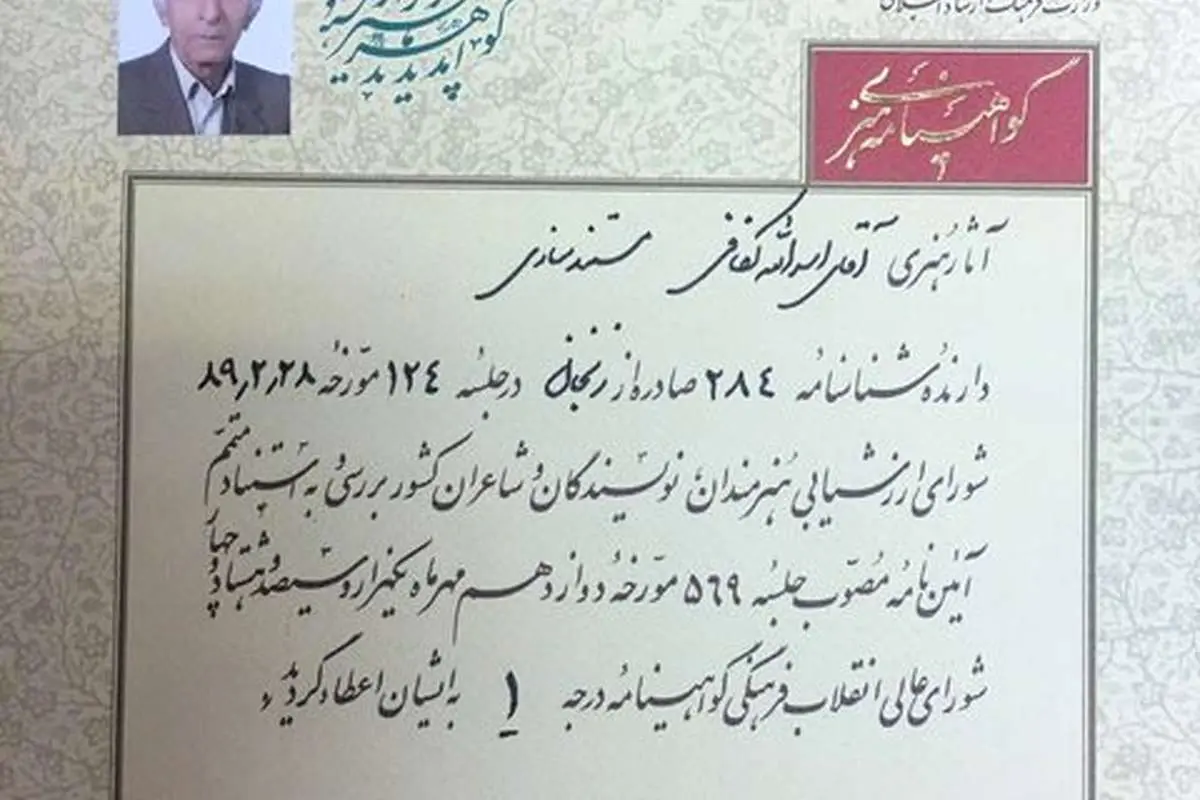 وزارت فرهنگ و ارشاد اسلامی
گواهینامه هنری
آثار هنری آقای اسدالله کفافی مستندسازی
دارنده شناسنامه ۲۸۴ صادره از زنجان در جلسه ۱۲۴ مورّخه ۸۹٫۲٫۲۸
شورای ارزشیابی هنرمندان، نویسندگان و شاعران کشور بررسی و به استناد متمّم
آئین نامه مُصوّب جلسه ۵۶۹ مورّخه دوازدهم مهرماه یکهزار و سیصد و هشتاد و چهار
شورای عالی انقلاب فرهنگی گواهینامه درجه ۱ به ایشان اعطاء گردید،